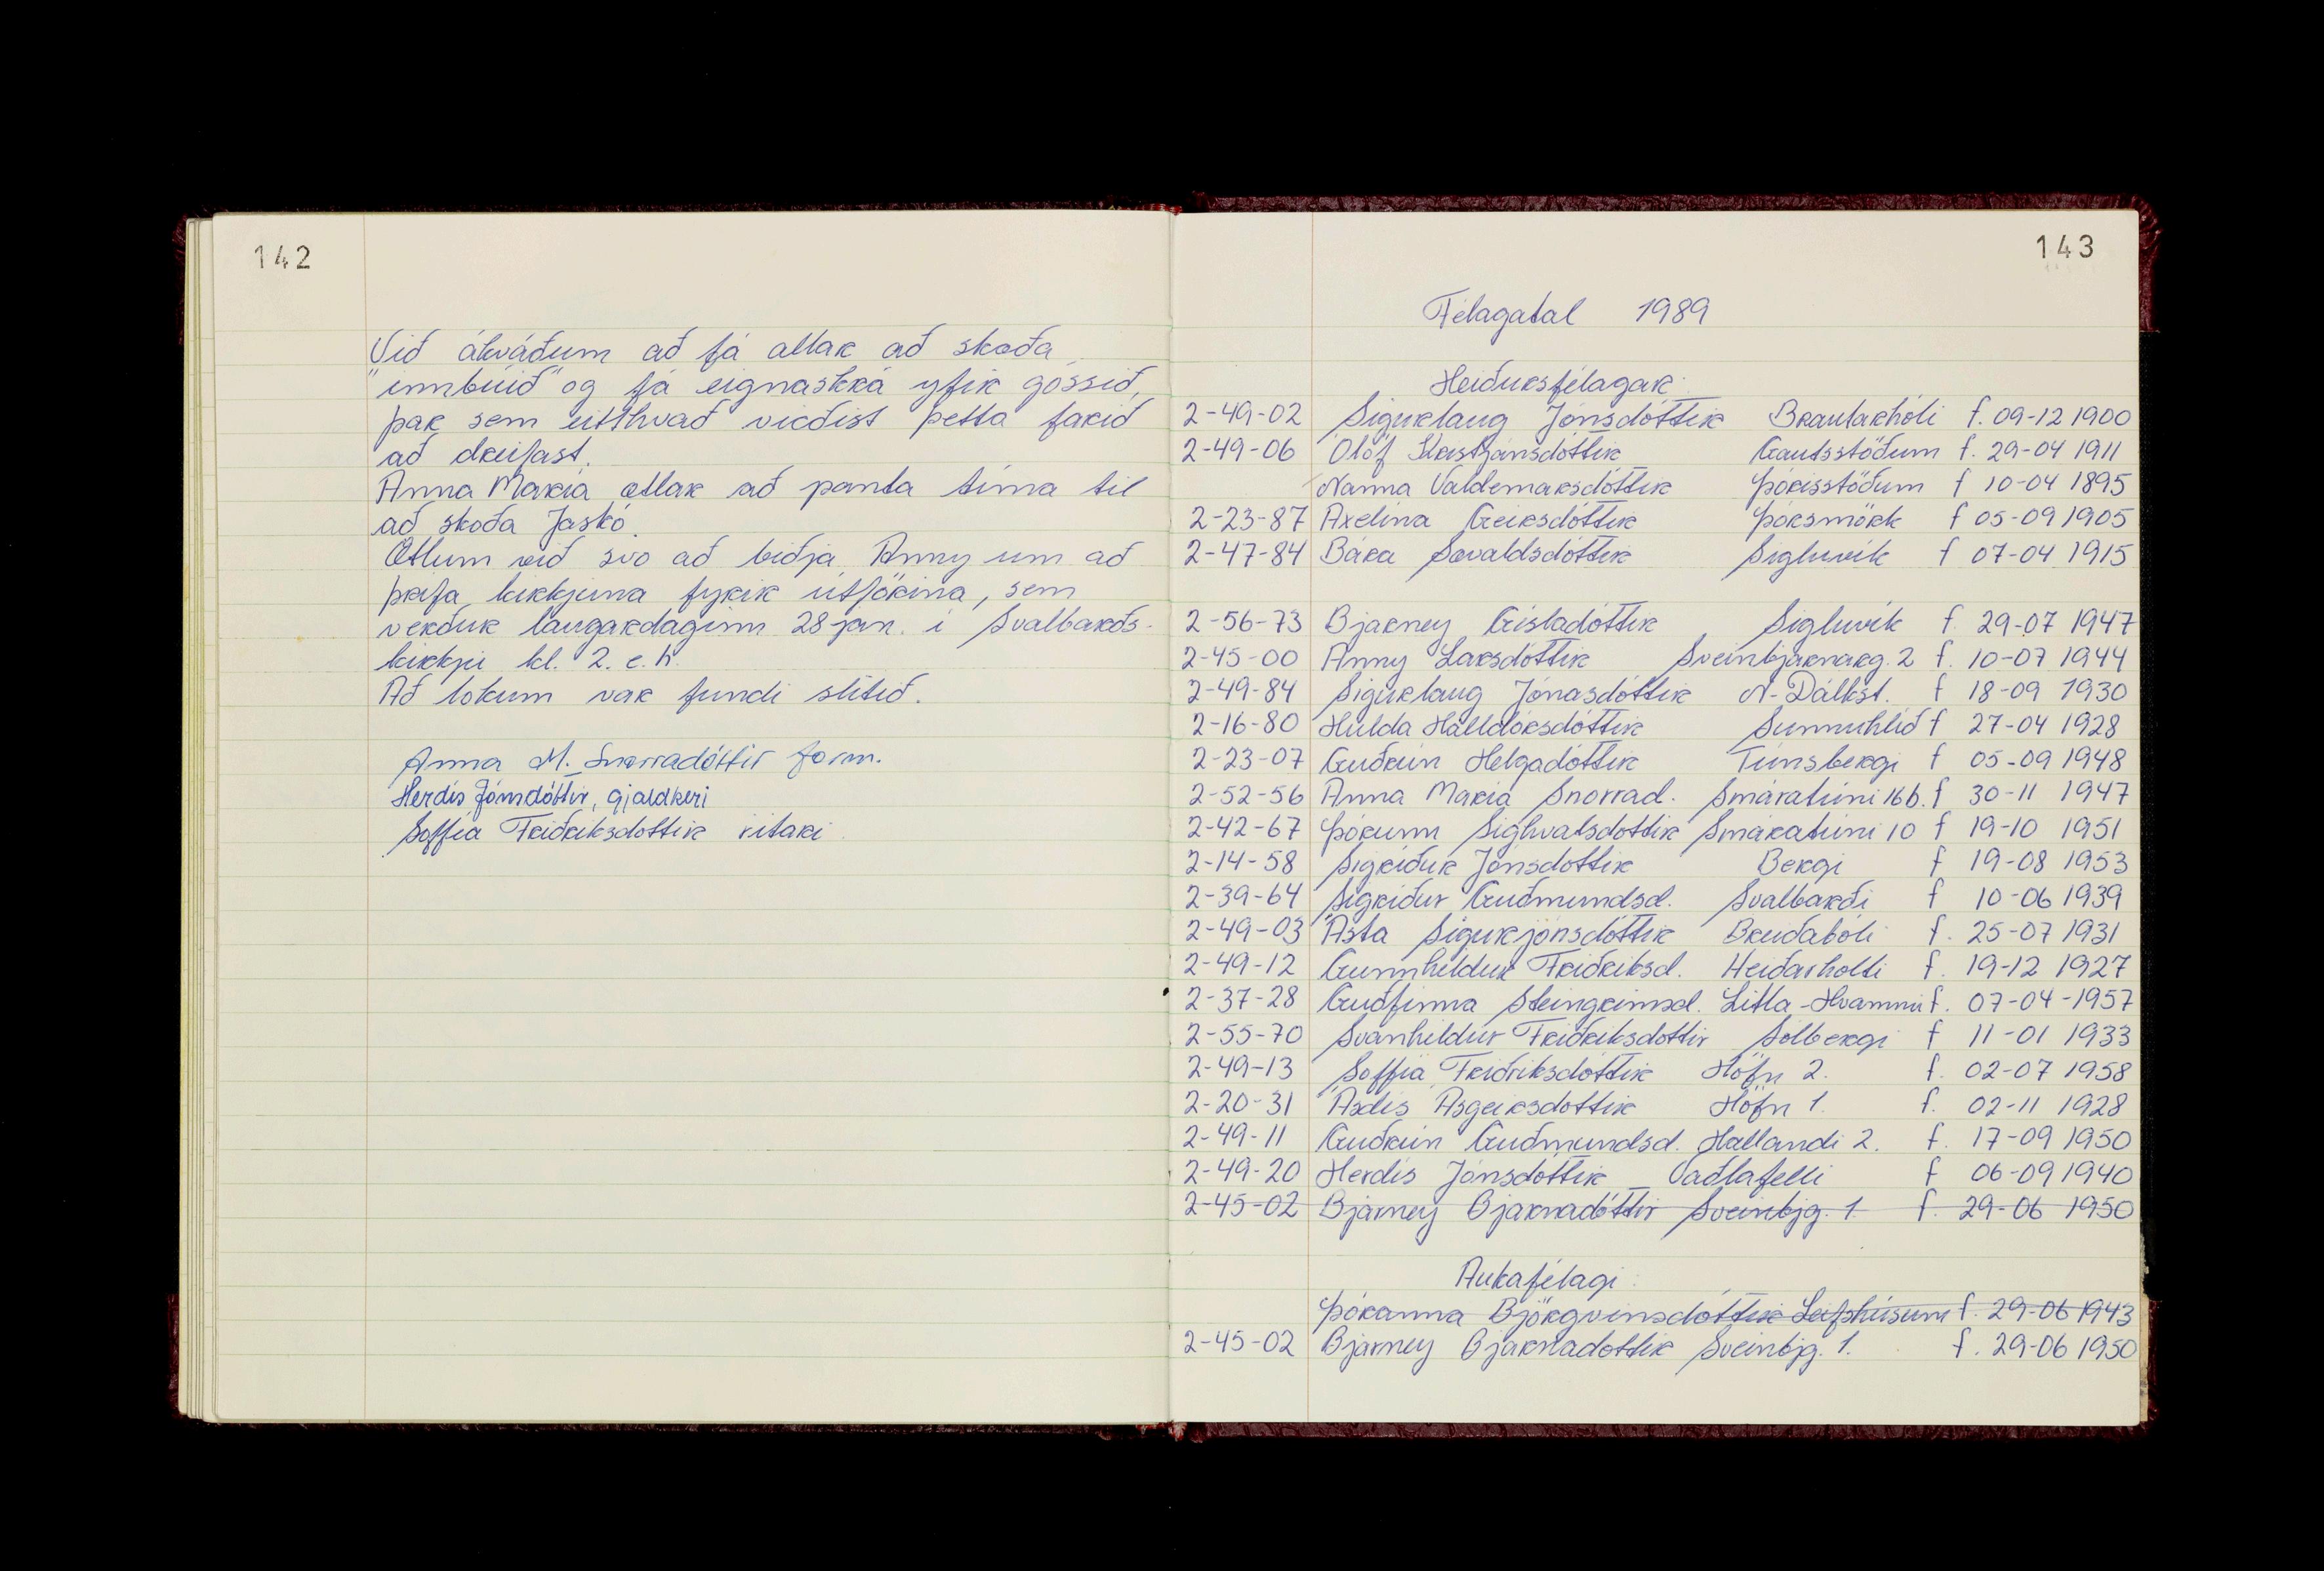 142
Við ákváðum að fá allar að skoða
"innbúið" og fá eignaskrá yfir góssið,
þar sem eitthvað virðist þetta farið
að dreifast.
Anna María ætlar að panta tíma til
að skoða Jaskó.
Ætlum við svo að biðja Anny um að
þrífa kirkjuna fyrir útförina, sem
verður laugardaginn 28 jan. í Svalbarðs-
kirkju kl. 2. e.h.
Að lokum var fundi slitið.
Anna M. Snorradóttir form.
Herdís Jónsdóttir, gjaldkeri
Soffía Friðriksdottir ritari
143
Félagatal 1989
Heiðursfélagar:
2-49-02 Sigurlaug Jónsdóttir Brautarhóli f. 09-12 1900
2-49-06 Ólöf Kristjánsdóttir Gautsstöðum f. 29-04 1911
Nanna Valdemarsdóttir Þórisstöðum f 10-04 1895
2-23-87 Axelína Geirsdóttir Þórsmörk f 05-09 1905
2-47-84 Bára Sævaldsdóttir Sigluvík f 07-04 1915
2-56-73 Bjarney Gísladóttir Sigluvík f. 29-07 1947
2-45-00 Anny Larsdóttir Sveinbjarnarg. 2 f. 10-07 1944
2-49-84 Sigurlaug Jónasdóttir N-Dálkst. f 18-09 1930
2-16-80 Hulda Halldórsdóttir Sunnuhlíð f 27-04 1928
2-23-07 Guðrún Helgadóttir Túnsbergi f 05-09 1948
2-52-56 Anna María Snorrad. Smáratúni 16b. f 30-11 1947
2-42-67 Þórunn Sighvatsdottir Smáratúni 10 f 19-10 1951
2-14-58 Sigríður Jónsdottir Bergi f 19-08 1953
2-39-64 Sigríður Guðmundsd. Svalbarði f 10-06 1939
2-49-03 Ásta Sigurjónsdóttir Breiðabóli f. 25-07 1931
2-49-12 Gunnhildur Friðriksd. Heiðarholti f. 19-12 1927
2-37-28 Guðfinna Steingrímsd. Litla-Hvammi f. 07-04-1957
2-55-70 Svanhildur Friðriksdottir Sólbergi f 11-01 1933
2-49-13 Soffía Friðriksdóttir Höfn 2. f. 02-07 1958
2-20-31 Ásdís Ásgeirsdottir Höfn 1. f. 02-11 1928
2-49-11 Guðrún Guðmundsd. Hallandi 2. f. 17-09 1950
2-49-20 Herdís Jónsdóttir Vaðlafelli f 06-09 1940
2-45-02 Bjarney Bjarnadóttir Sveinbjg. 1. f. 29-06 1950
Aukafélagi:
Þóranna Björgvinsdóttir Leifshúsum f. 29-06 1943
2-45-02 Bjarney Bjarnadottir Sveinbjg. 1. f. 29-06 1950